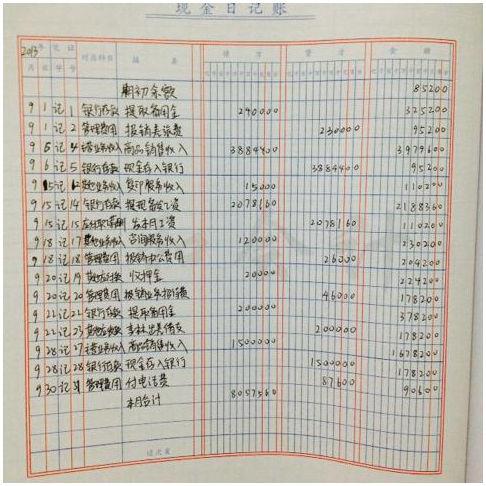 现金日记账
2013年 凭证 对应科目 摘要 借方 贷方 余额
月 日 字 号
期初余额 85200
9 1 记 1 银行存款 提取备用金 240000 325200
9 1 记 2 管理费用 报销差旅费 230000 95200
9 6 记 4 主营业务收入 商品销售收入 3884400 3979600
9 6 记 5 银行存款 现金存入银行 3884400 95200
9 15 记 12 其他业务收入 复印服务收入 15000 110200
9 15 记 14 银行存款 提现备发工资 2078160 2188360
9 15 记 15 应付职工薪酬 发本月工资 2078160 110200
9 18 记 17 其他业务收入 咨询服务收入 120000 230200
9 18 记 18 管理费用 报销办公费用 26000 204200
9 20 记 19 其他应付款 收押金 20000 224200
9 20 记 20 管理费用 报销业务招待费 46000 178200
9 21 记 21 银行存款 提取备用金 200000 378200
9 22 记 23 其他应收款 李林出差借支 200000 178200
9 28 记 27 主营业务收入 商品销售收入 1500000 1678200
9 28 记 28 银行存款 现金存入银行 1500000 178200
9 30 记 31 管理费用 付电话费 87600 90600
本月合计 8057560
过次页